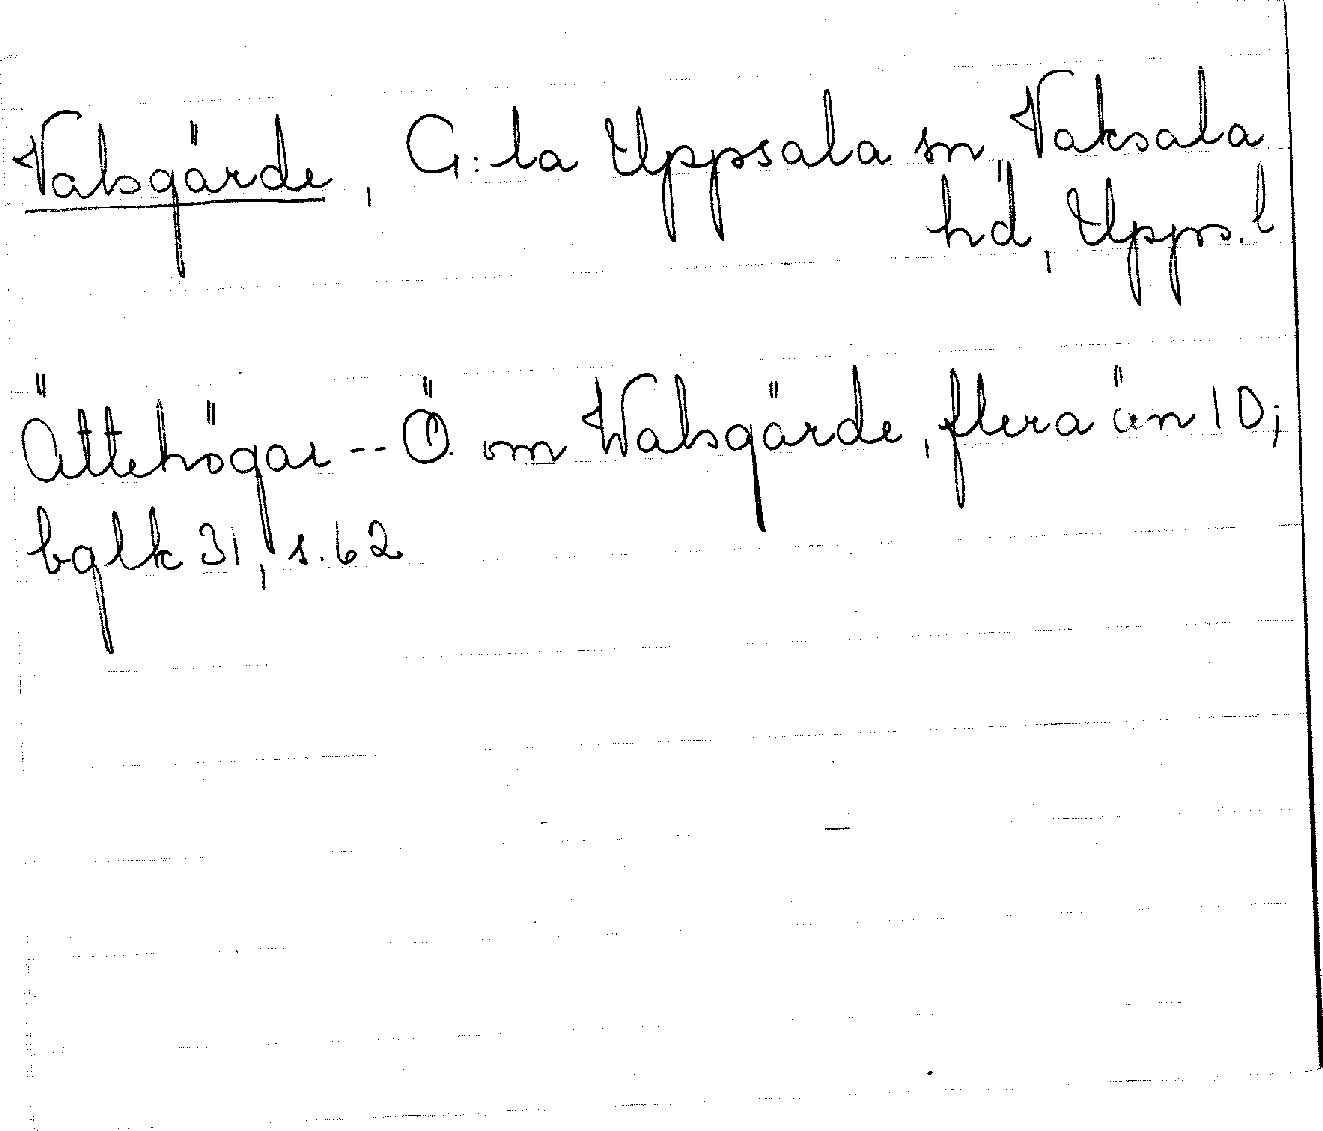 Valsgärde, G:la Uppsala sn, Vaksala
hd, Upps. l
Ättehögar -- Ö. om Walsgärde, flera än 10;
bglk 31, s. 62